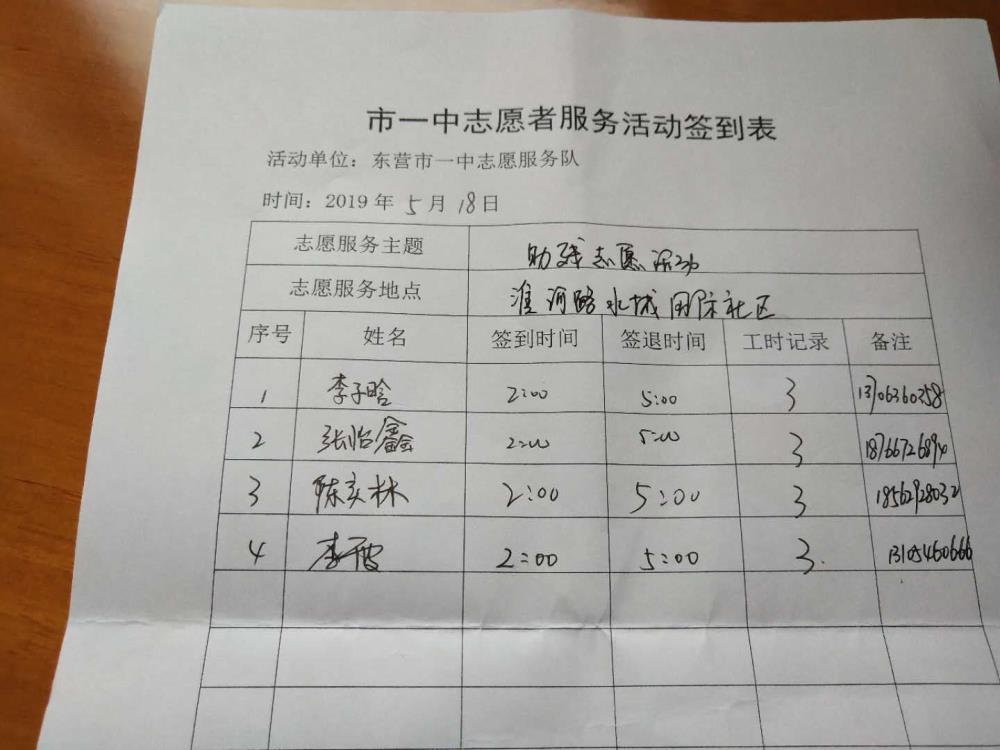 市一中志愿者服务活动签到表
活动单位：东营市一中志愿服务队
时间：2019 年 5 月 18 日
志愿服务主题 助残志愿活动
志愿服务地点 淮河路水城国际社区
序号 姓名 签到时间 签退时间 工时记录 备注
1 李子晗 2:00 5:00 3
2 张怡鑫 2:00 5:00 3 18766726894
3 陈奕林 2:00 5:00 3 18562928032
4 2:00 5:00 3. 13105460666